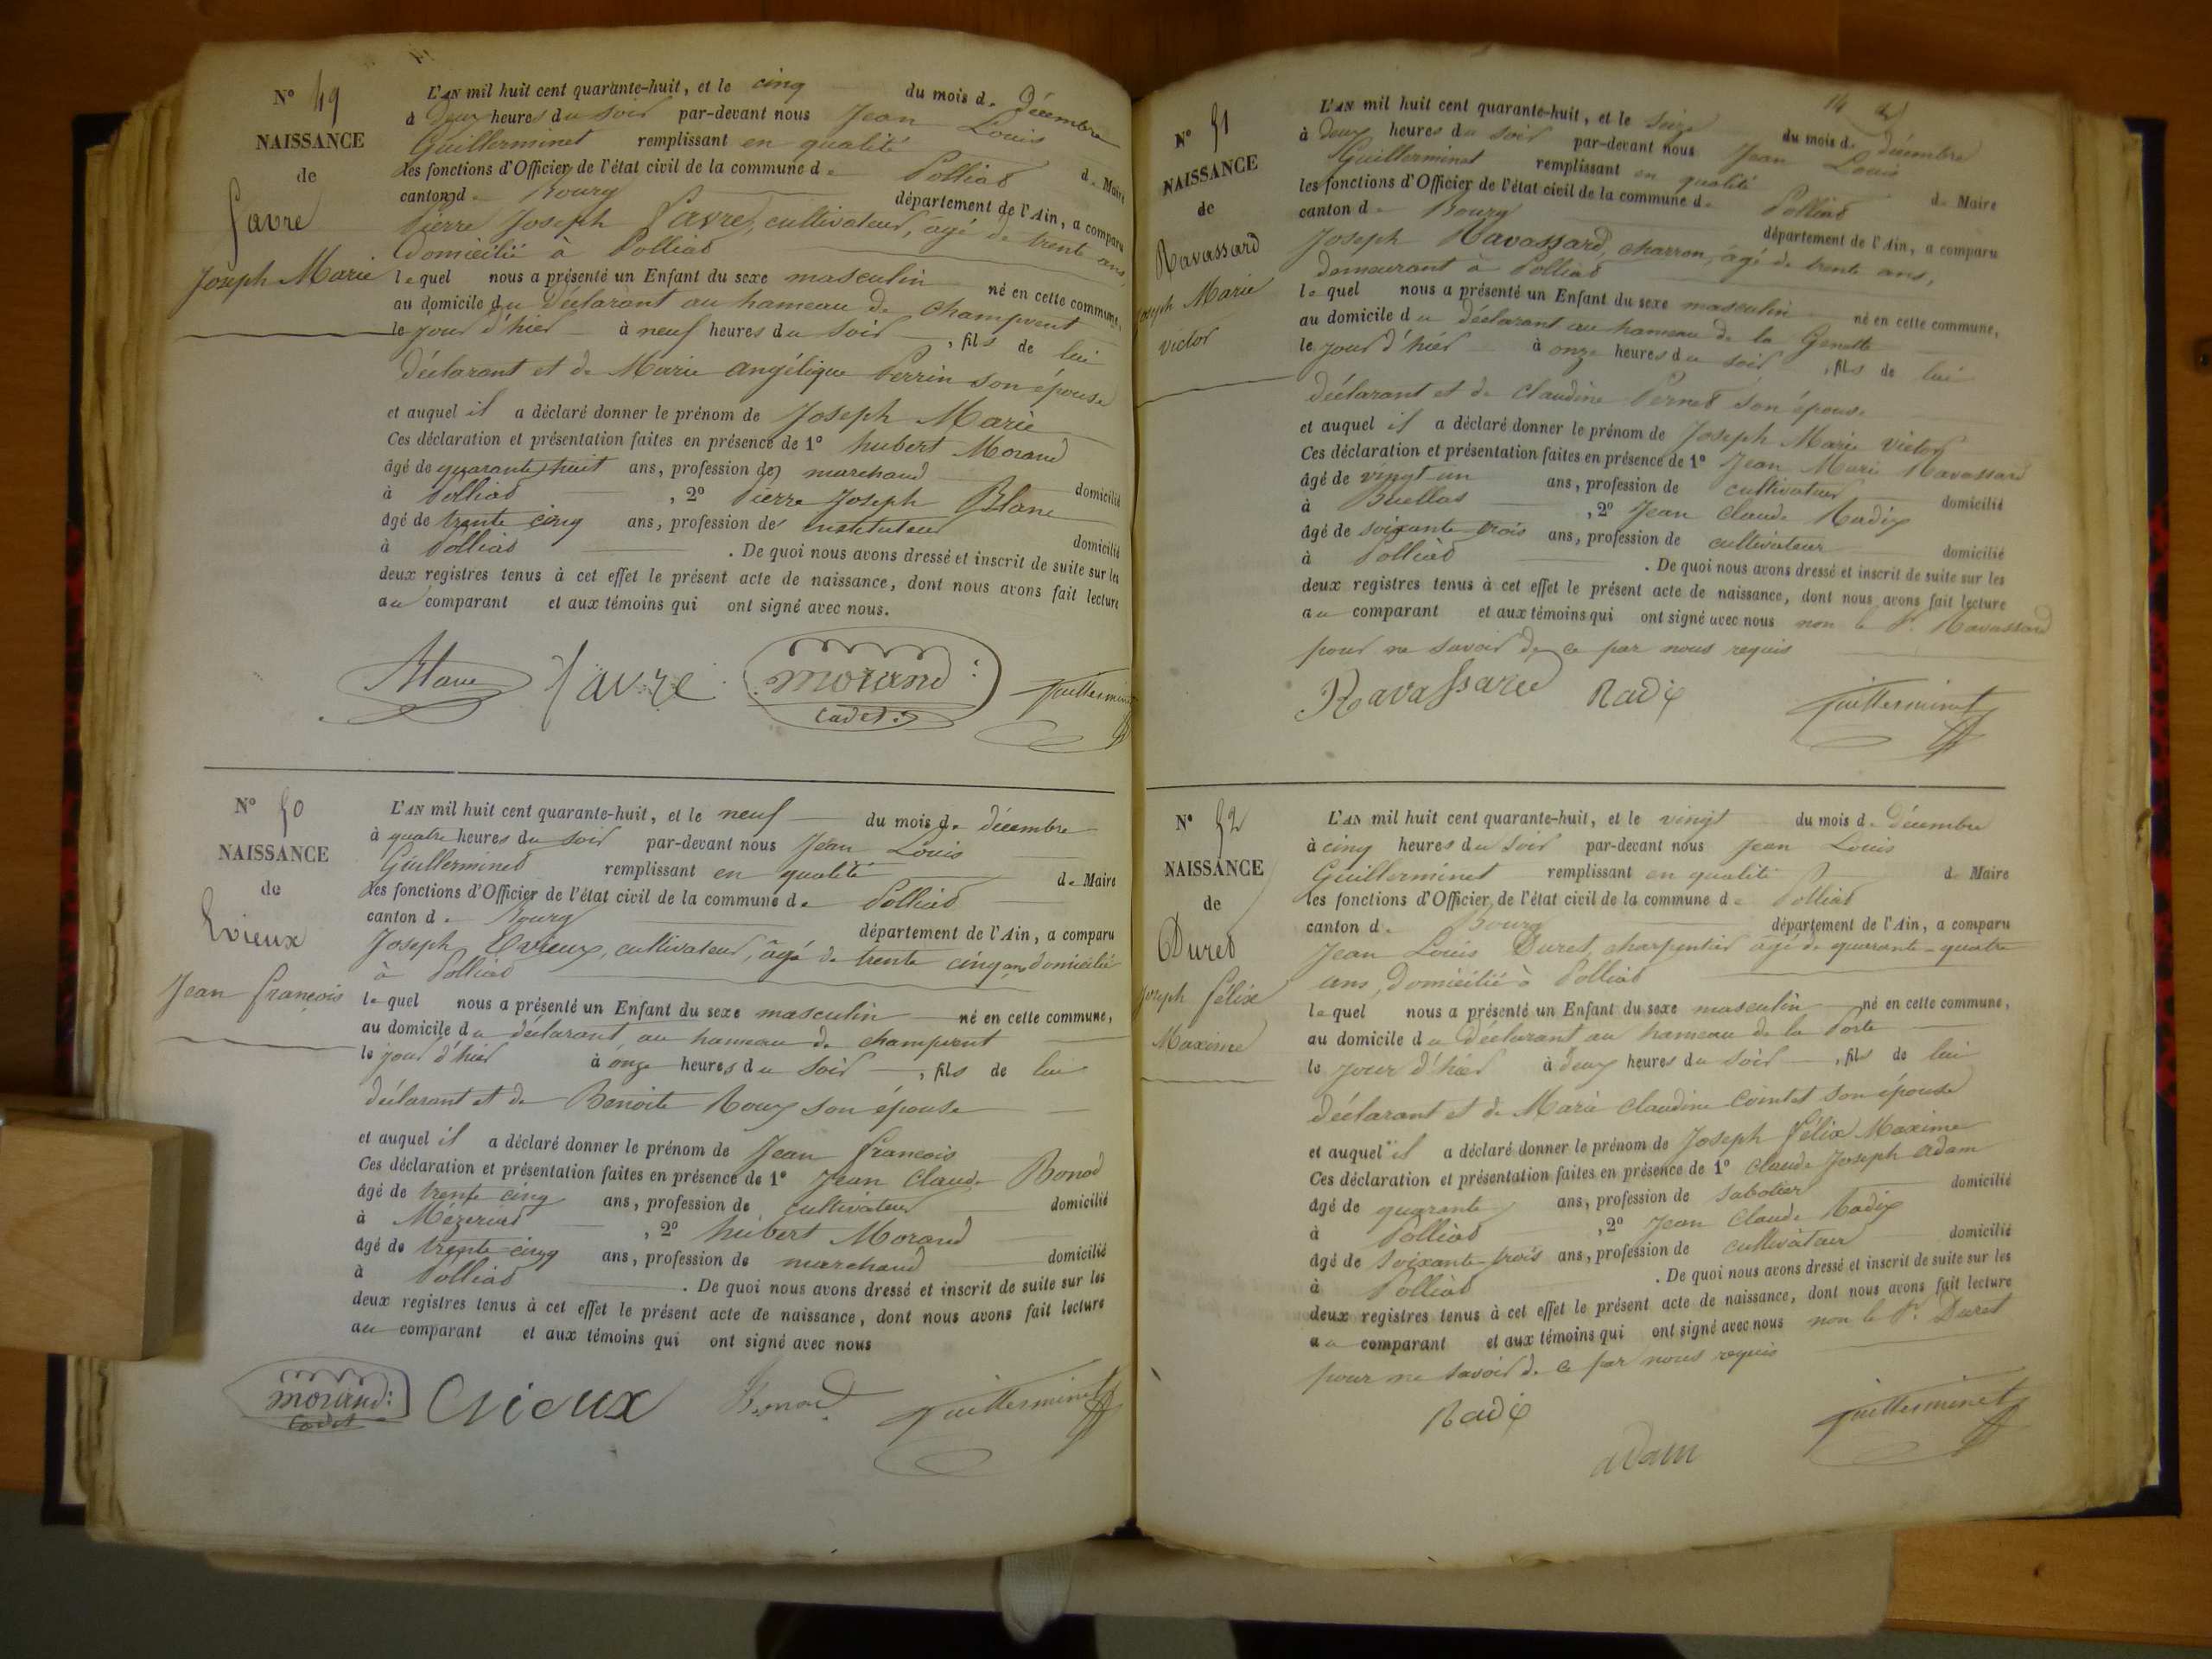 N° 49
NAISSANCE
de
Favre
Joseph Marie
L'AN mil huit cent quarante-huit, et le cinq du mois de Décembre
à deux heures du soir par-devant nous Jean Louis
Guillerminet remplissant en qualité de Maire
les fonctions d'Officier de l'état civil de la commune de Polliat
canton de Bourg département de l'Ain, a comparu
Pierre Joseph Favre, cultivateur, âgé de trente ans,
domicilié à Polliat
lequel nous a présenté un Enfant du sexe masculin né en cette commune,
au domicile du déclarant au hameau de Champvent
le jour d'hier à neuf heures du soir, fils de lui
déclarant et de Marie Angélique Perrin son épouse
et auquel il a déclaré donner le prénom de Joseph Marie
Ces déclaration et présentation faites en présence de 1° hubert Morand
âgé de quarante huit ans, profession de marchand domicilié
à Polliat, 2° Pierre Joseph Blanc
âgé de trente cinq ans, profession de instituteur domicilié
à Polliat. De quoi nous avons dressé et inscrit de suite sur les
deux registres tenus à cet effet le présent acte de naissance, dont nous avons fait lecture
au comparant et aux témoins qui ont signé avec nous.
Blanc favre morand cadet Guillerminet
N° 50
NAISSANCE
de
Evieux
Jean françois
L'AN mil huit cent quarante-huit, et le neuf du mois de décembre
à quatre heures du soir par-devant nous Jean Louis
Guillerminet remplissant en qualité de Maire
les fonctions d'Officier de l'état civil de la commune de Polliat
canton de Bourg département de l'Ain, a comparu
Joseph Evieux, cultivateur, âgé de trente cinq ans domicilié
à Polliat
lequel nous a présenté un Enfant du sexe masculin né en cette commune,
au domicile du déclarant, au hameau de champvent
le jour d'hier à onze heures du soir, fils de lui
déclarant et de Benoite Roux son épouse
et auquel il a déclaré donner le prénom de Jean francois
Ces déclaration et présentation faites en présence de 1° Jean Claude Bonod
âgé de trente cinq ans, profession de cultivateur domicilié
à Mézériat, 2° hubert Morand
âgé de trente cinq ans, profession de marchand domicilié
à Polliat. De quoi nous avons dressé et inscrit de suite sur les
deux registres tenus à cet effet le présent acte de naissance, dont nous avons fait lecture
au comparant et aux témoins qui ont signé avec nous
morand cadet Evieux Guillerminet
14
N° 51
NAISSANCE
de
Ravassard
Joseph Marie
victor
L'AN mil huit cent quarante-huit, et le seize du mois de décembre
à deux heures du soir par-devant nous Jean Louis
Guillerminet remplissant en qualité de Maire
les fonctions d'Officier de l'état civil de la commune de Polliat
canton de Bourg département de l'Ain, a comparu
Joseph Ravassard, charron, âgé de trente ans,
demeurant à Polliat
lequel nous a présenté un Enfant du sexe masculin né en cette commune,
au domicile du déclarant au hameau de la Genette
le jour d'hier à onze heures du soir, fils de lui
déclarant et de claudine Pernet son épouse
et auquel il a déclaré donner le prénom de Joseph Marie victor
Ces déclaration et présentation faites en présence de 1° Jean Marie Ravassard
âgé de vingt un ans, profession de cultivateur domicilié
à Buellas, 2° Jean Claude Radix
âgé de soixante trois ans, profession de cultivateur domicilié
à Polliat. De quoi nous avons dressé et inscrit de suite sur les
deux registres tenus à cet effet le présent acte de naissance, dont nous avons fait lecture
au comparant et aux témoins qui ont signé avec nous non le Sr. Ravassard
pour ne savoir de ce par nous requis
Ravassard Radix Guillerminet
N° 52
NAISSANCE
de
Duret
Joseph félix
Maxime
L'AN mil huit cent quarante-huit, et le vingt du mois de décembre
à cinq heures du soir par-devant nous Jean Louis
Guillerminet remplissant en qualité de Maire
les fonctions d'Officier de l'état civil de la commune de Polliat
canton de Bourg département de l'Ain, a comparu
Jean Louis Duret, charpentier âgé de quarante-quatre
ans, domicilié à Polliat
lequel nous a présenté un Enfant du sexe masculin né en cette commune,
au domicile du déclarant au hameau de la Porte
le jour d'hier à deux heures du soir, fils de lui
déclarant et de Marie claudine Cointet son épouse
et auquel il a déclaré donner le prénom de Joseph félix Maxime
Ces déclaration et présentation faites en présence de 1° Claude Joseph Adam
âgé de quarante ans, profession de sabotier domicilié
à Polliat, 2° Jean Claude Radix
âgé de soixante trois ans, profession de cultivateur domicilié
à Polliat. De quoi nous avons dressé et inscrit de suite sur les
deux registres tenus à cet effet le présent acte de naissance, dont nous avons fait lecture
au comparant et aux témoins qui ont signé avec nous non le Sr. Duret
pour ne savoir de ce par nous requis
Radix adam Guillerminet